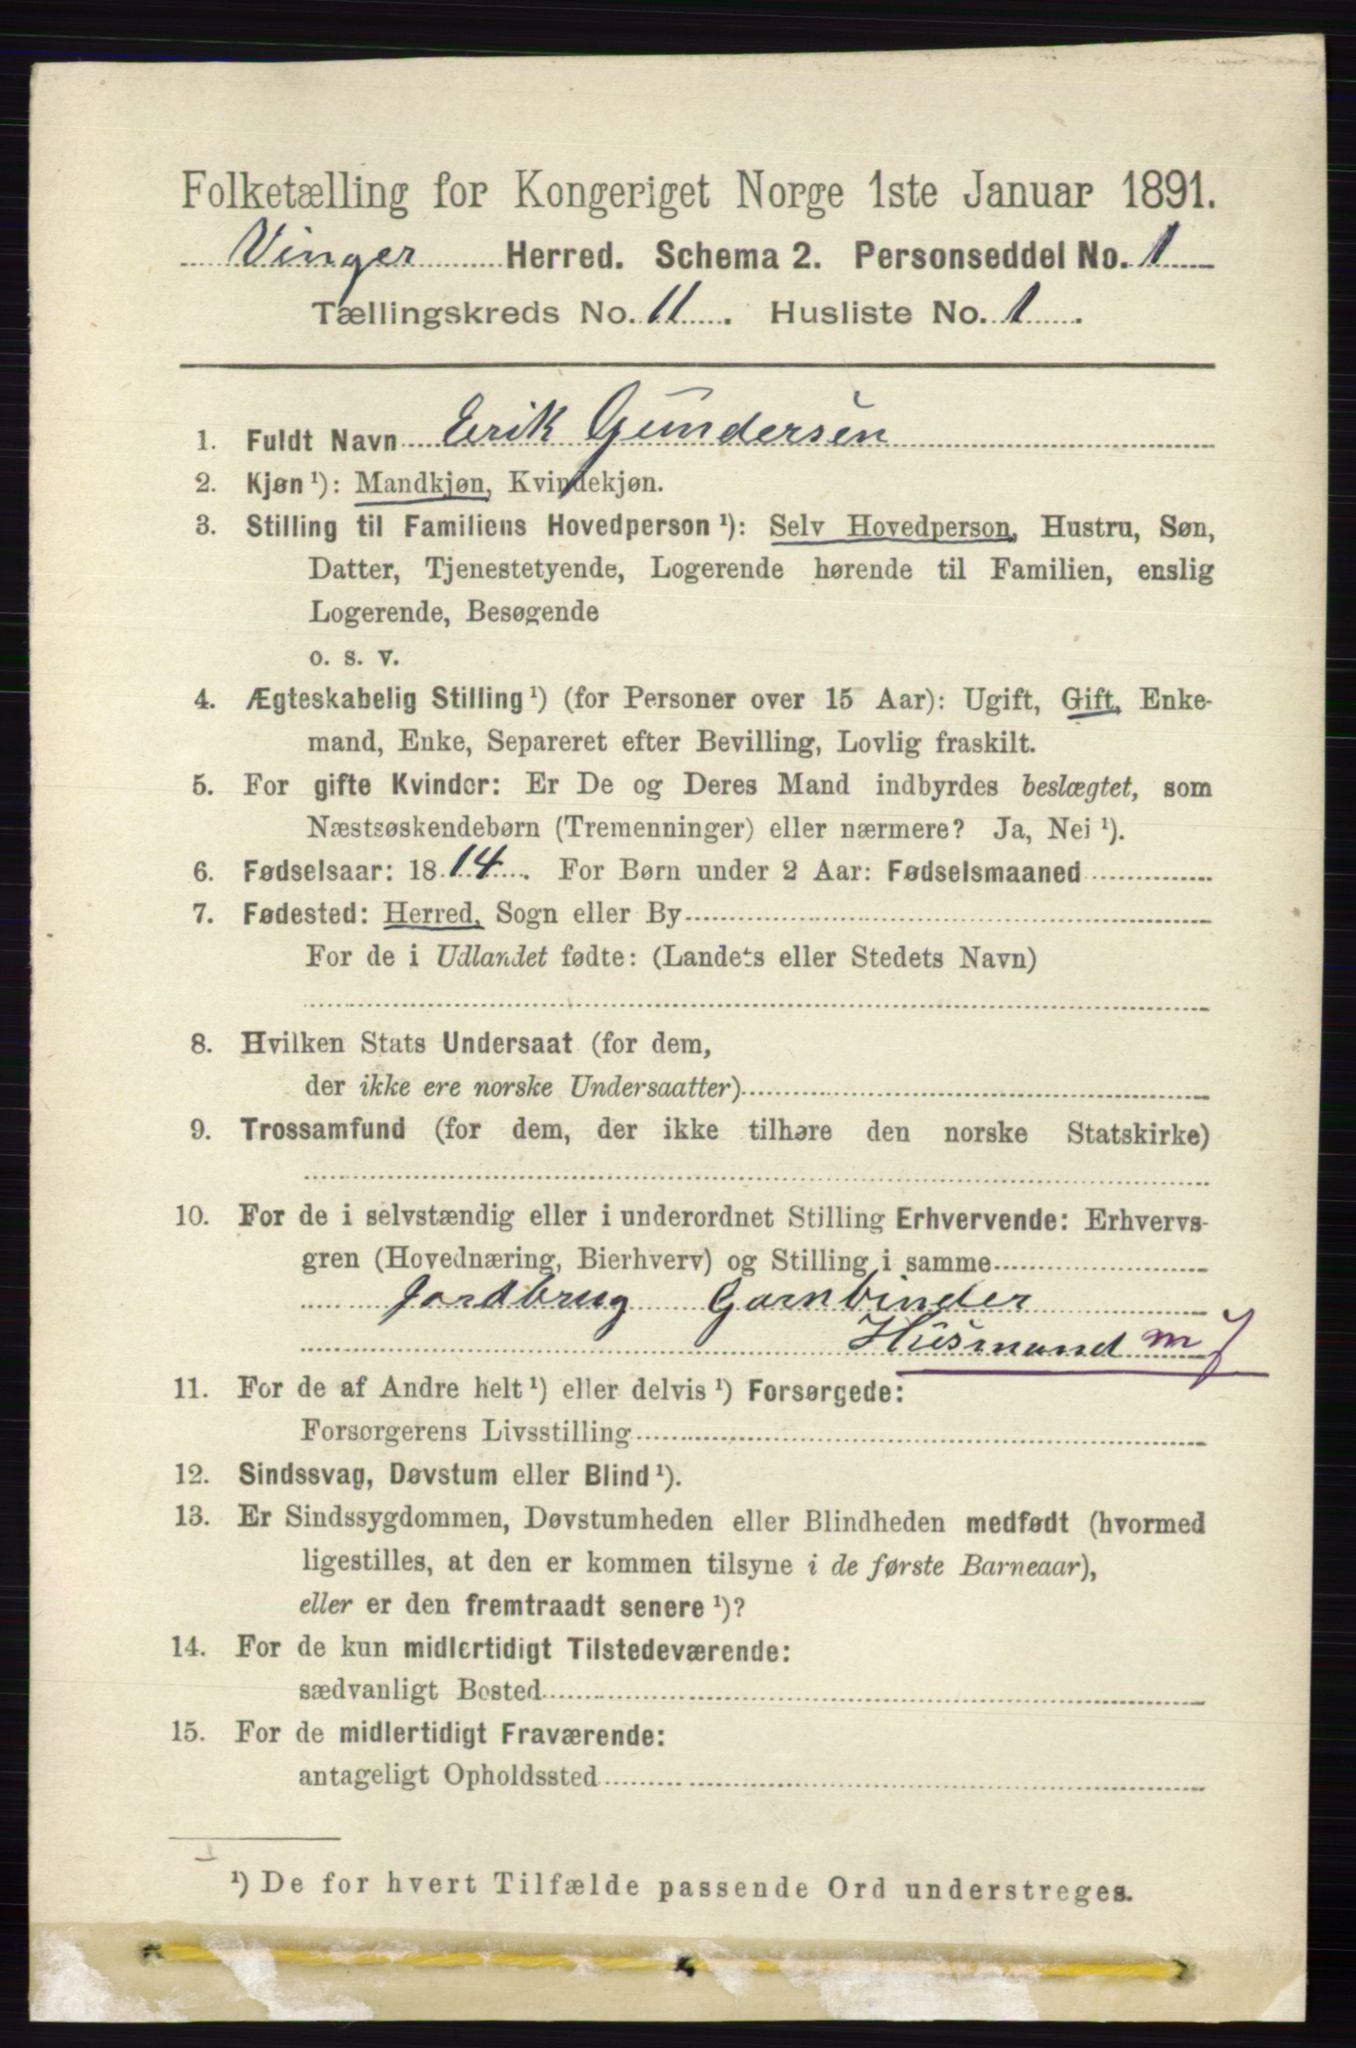 Folketælling for Kongeriget Norge 1ste Januar 1891.
Vinger Herred. Schema 2. Personseddel No. 1
Tællingskreds No. 11. Husliste No. 1.
1. Fuldt Navn Erik Gundersen
2. Kjøn ¹): Mandkjøn, Kvindekjøn.
3. Stilling til Familiens Hovedperson ¹): Selv Hovedperson, Hustru, Søn,
Datter, Tjenestetyende, Logerende hørende til Familien, enslig
Logerende, Besøgende
o. s. v.
4. Ægteskabelig Stilling ¹) (for Personer over 15 Aar): Ugift, Gift, Enke-
mand, Enke, Separeret efter Bevilling, Lovlig fraskilt.
5. For gifte Kvinder: Er De og Deres Mand indbyrdes beslægtet, som
Næstsøskendebørn (Tremenninger) eller nærmere? Ja, Nei ¹).
6. Fødselsaar: 1814. For Børn under 2 Aar: Fødselsmaaned
7. Fødested: Herred, Sogn eller By
For de i Udlandet fødte: (Landets eller Stedets Navn)
8. Hvilken Stats Undersaat (for dem,
der ikke ere norske Undersaatter)
9. Trossamfund (for dem, der ikke tilhøre den norske Statskirke)
10. For de i selvstændig eller i underordnet Stilling Erhvervende: Erhvervs-
gren (Hovednæring, Bierhverv) og Stilling i samme
Jordbrug Garnbinder
Husmand m J
11. For de af Andre helt ¹) eller delvis ¹) Forsørgede:
Forsørgerens Livsstilling
12. Sindssvag, Døvstum eller Blind ¹).
13. Er Sindssygdommen, Døvstumheden eller Blindheden medfødt (hvormed
ligestilles, at den er kommen tilsyne i de første Barneaar),
eller er den fremtraadt senere ¹)?
14. For de kun midlertidigt Tilstedeværende:
sædvanligt Bosted
15. For de midlertidigt Fraværende:
antageligt Opholdssted
¹) De for hvert Tilfælde passende Ord understreges.